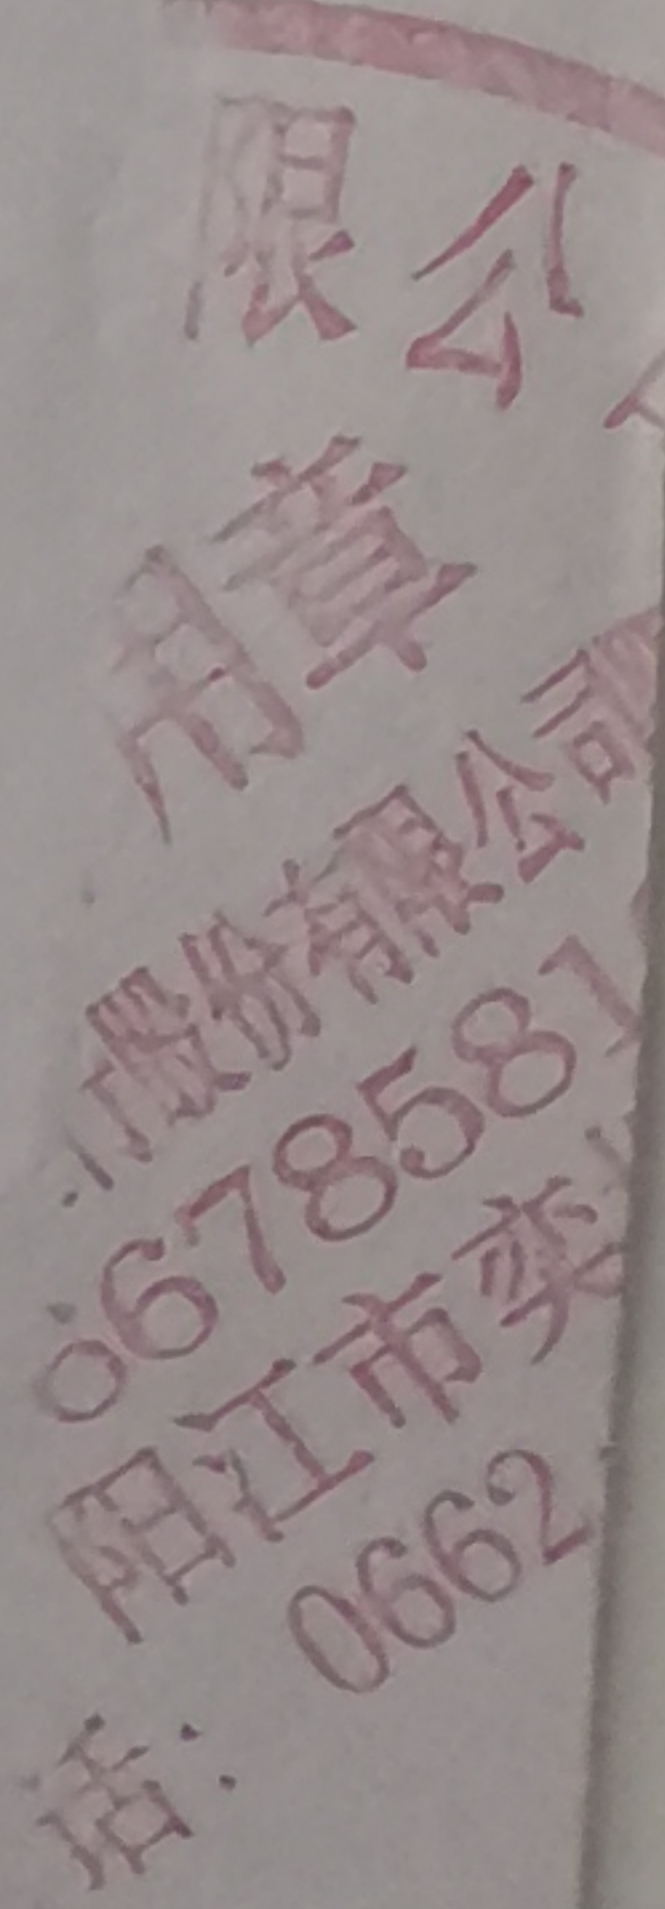 限公
用章
股份有限公司
067858
阳江市
0662
话：